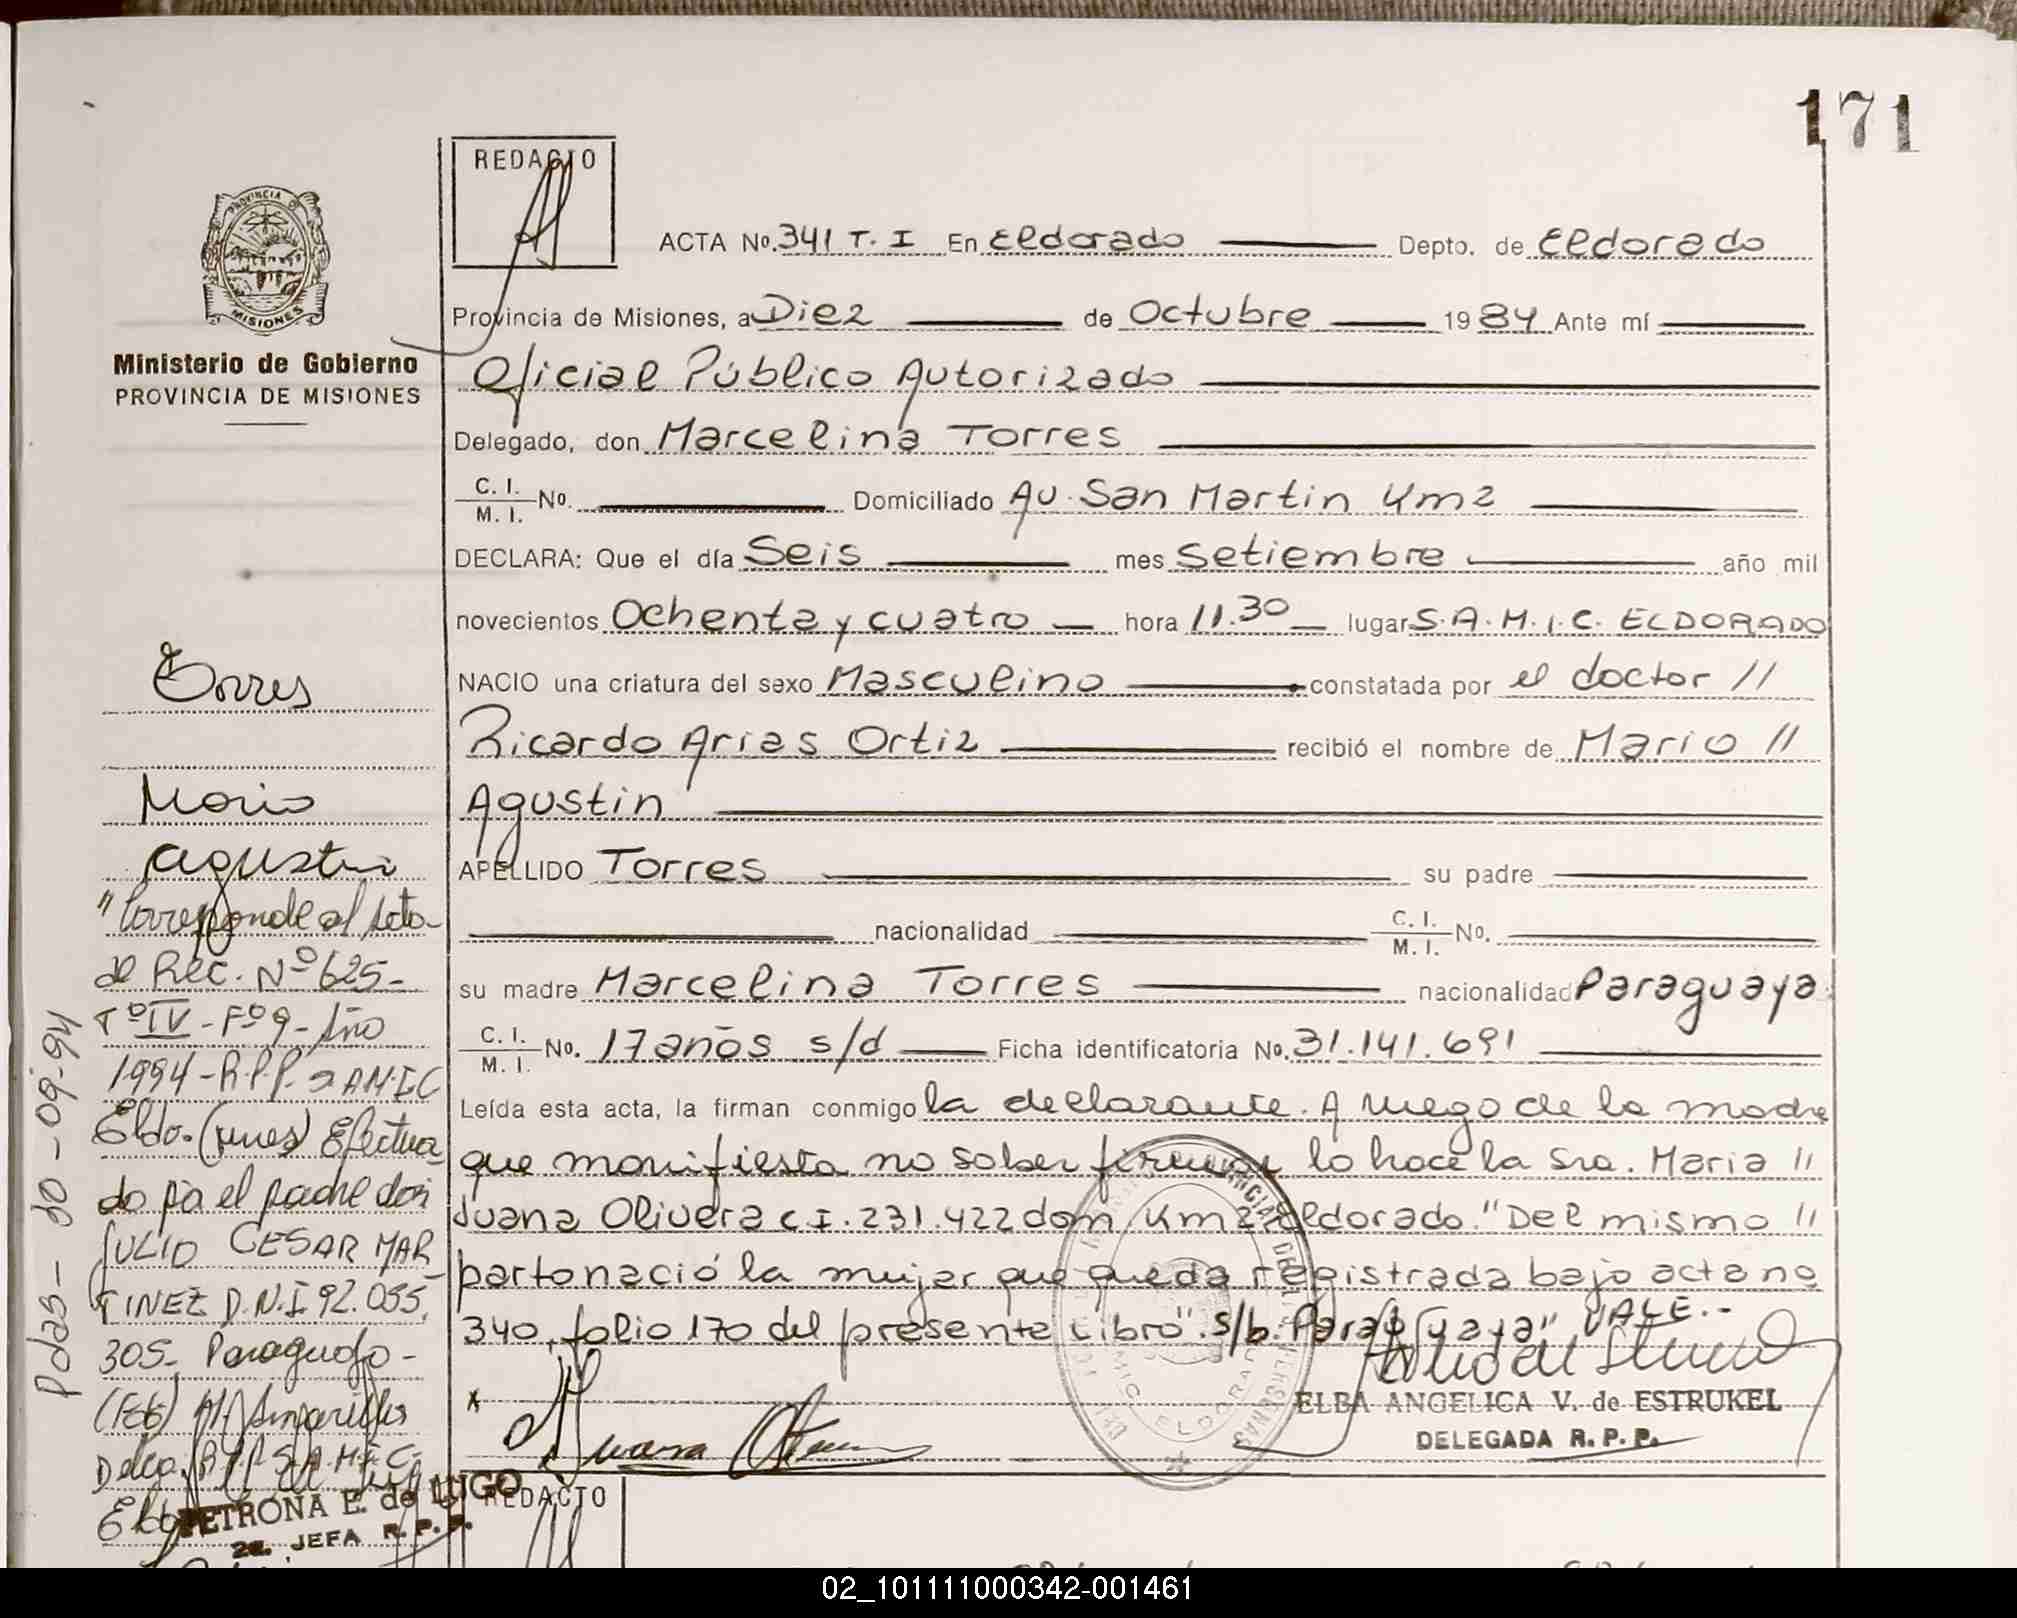 171
REDACTO
ACTA No. 341 T. I En Eldorado Depto. de Eldorado
PROVINCIA DE MISIONES
Provincia de Misiones, a Diez de Octubre 1984 Ante mí
Ministerio de Gobierno
PROVINCIA DE MISIONES
Oficial Público Autorizado
Delegado, don Marcelina Torres
C. I.
M. I. No. Domiciliado Av. San Martin Km 2
DECLARA: Que el día Seis mes Setiembre año mil
novecientos Ochenta y cuatro hora 11.30 lugar S.A.M.I.C. ELDORADO
NACIO una criatura del sexo Masculino constatada por el doctor //
Ricardo Arias Ortiz recibió el nombre de Mario //
Agustin
APELLIDO Torres su padre
nacionalidad C. I.
M. I. No.
su madre Marcelina Torres nacionalidad Paraguaya
C. I.
M. I. No. 17 años s/d Ficha identificatoria No. 31.141.691
Leída esta acta, la firman conmigo la declarante. A ruego de la madre
que manifiesta no saber firmar lo hace la Sra. Maria //
Juana Olivera C.I. 231.422 dom. Km 2 Eldorado. "Del mismo //
parto nació la mujer que queda registrada bajo acta no
340, folio 170 del presente Libro". s/b. Paraguaya" VALE.-
ELBA ANGELICA V. de ESTRUKEL
DELEGADA R. P. P.
Torres
Mario
Agustin
"Corresponde al Acta
de Rec. Nº 625-
Tº IV - Fº 9 - Año
1994 - R.P.P. SAMIC
Eldo. (Mnes) Efectua
do p/a el padre don
JULIO CESAR MAR
TINEZ D.N.I. 92.055.
305- Paraguayo-
Pdas - 30-09-94
PETRONA E. de LUGO
2a. JEFA R. P. P.
REDACTO
02_101111000342-001461